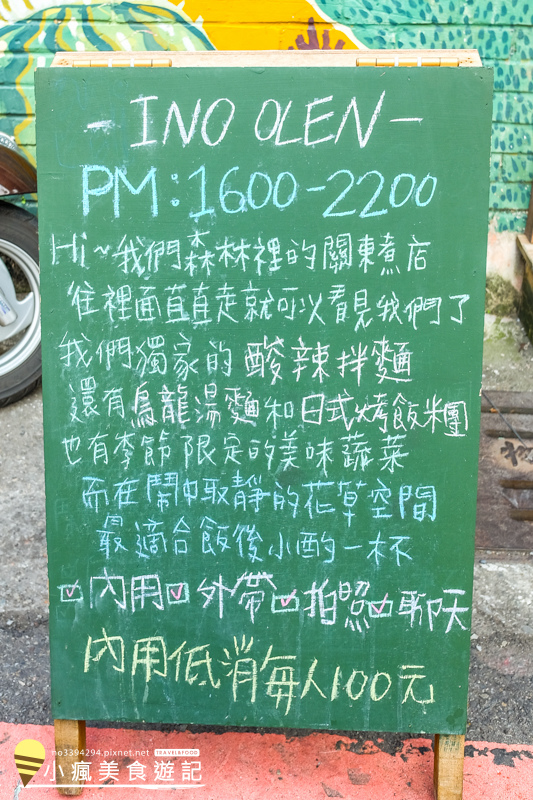 - INO OLEN -
PM:1600-2200
Hi~我們森林裡的關東煮店
往裡面直直走就可以看見我們了
我們獨家的酸辣拌麵
還有烏龍湯麵和日式烤飯糰
也有季節限定的美味蔬菜
而在鬧中取靜的花草空間
最適合飯後小酌一杯
☑內用☑外帶☑拍照☑聊天
內用低消每人100元
no3394294.pixnet.net TRAVEL&FOOD
小瘋美食遊記